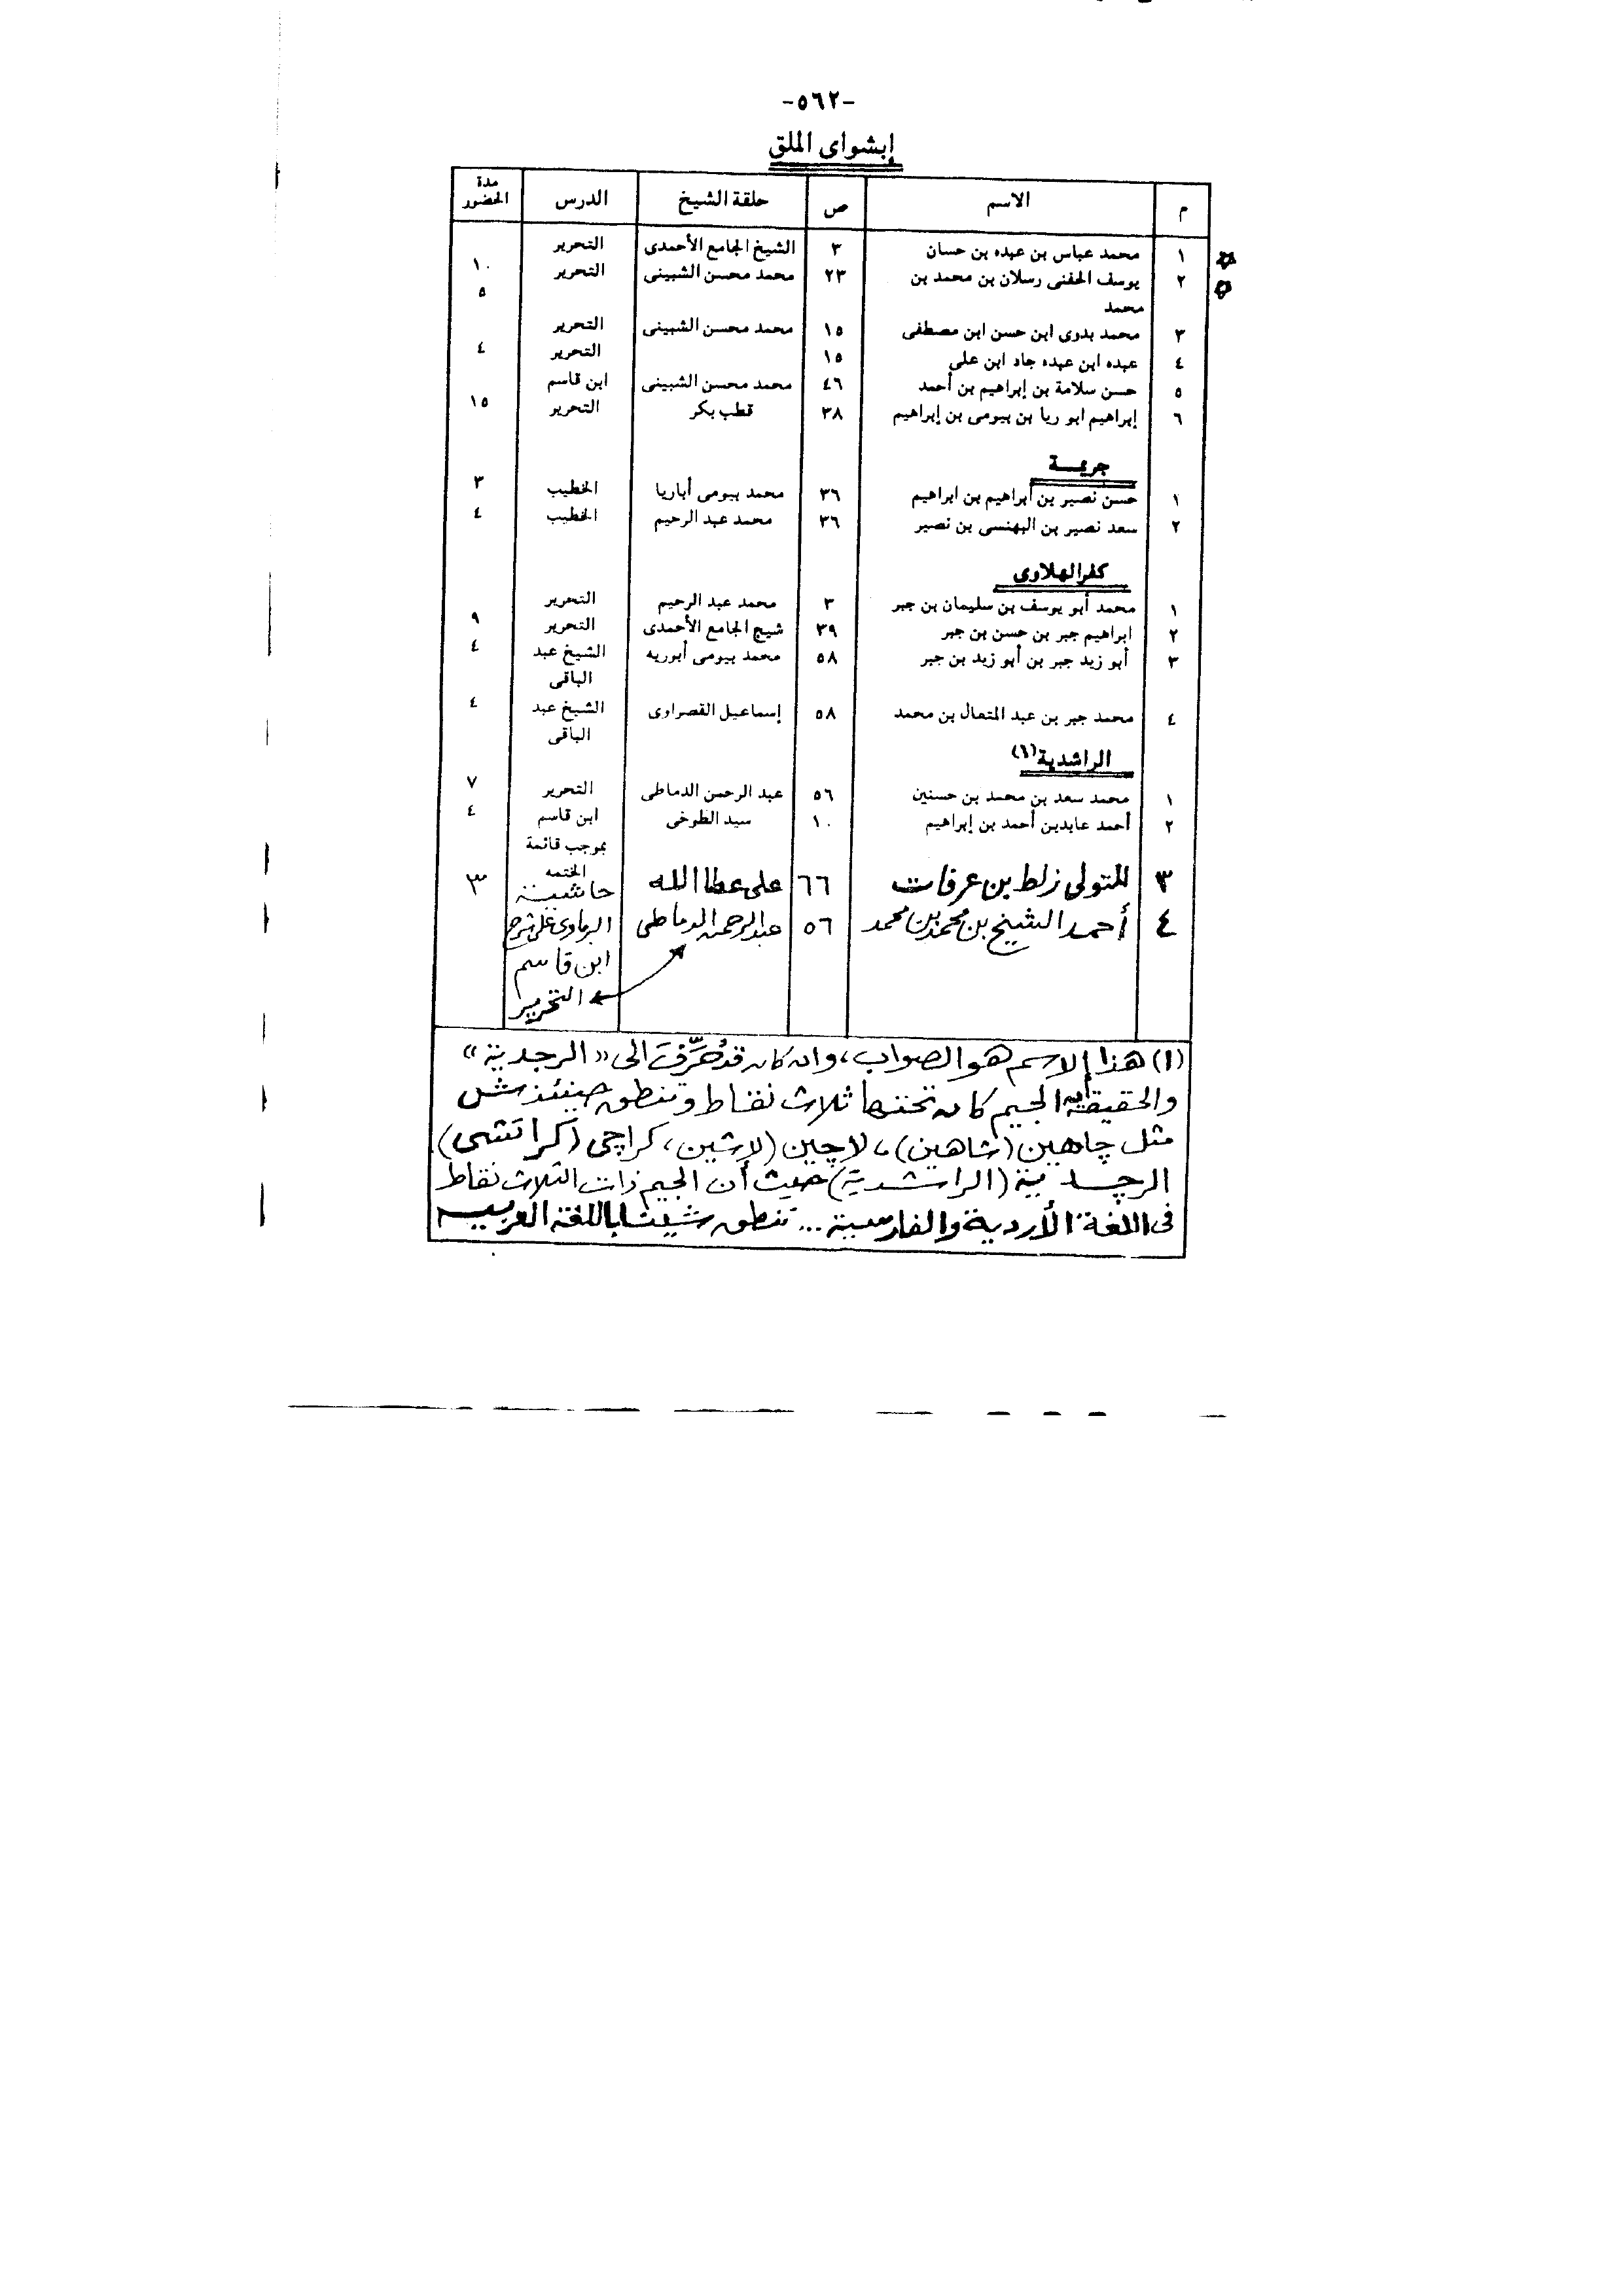 -٥٦٢-
إبشواى الملق
م الاسم ص حلقة الشيخ الدرس مدة الحضور
١ محمد عباس بن عبده بن حسان ٣ الشيخ الجامع الأحمدى التحرير ١٠
٢ يوسف الحفنى رسلان بن محمد بن ٢٣ محمد محسن الشبينى التحرير ٥
محمد
٣ محمد بدوى ابن حسن ابن مصطفى ١٥ محمد محسن الشبينى التحرير
٤ عبده ابن عبده جاد ابن على ١٥ التحرير ٤
٥ حسن سلامة بن إبراهيم بن أحمد ٤٦ محمد محسن الشبينى ابن قاسم
٦ إبراهيم ابو ريا بن بيومى بن إبراهيم ٣٨ قطب بكر التحرير ١٥
جريمة
١ حسن نصير بن ابراهيم بن ابراهيم ٣٦ محمد بيومى أباريا الخطيب ٣
٢ سعد نصير بن البهنسى بن نصير ٣٦ محمد عبد الرحيم الخطيب ٤
كفر الهلاوى
١ محمد أبو يوسف بن سليمان بن جبر ٣ محمد عبد الرحيم التحرير
٢ ابراهيم جبر بن حسن بن جبر ٣٩ شيخ الجامع الأحمدى التحرير ٩
٣ أبو زيد جبر بن أبو زيد بن جبر ٥٨ محمد بيومى أبوريه الشيخ عبد ٤
الباقى
٤ محمد جبر بن عبد المتعال بن محمد ٥٨ إسماعيل القصراوى الشيخ عبد ٤
الباقى
الراشدية(١)
١ محمد سعد بن محمد بن حسنين ٥٦ عبد الرحمن الدماطى التحرير ٧
٢ أحمد عابدبن أحمد بن إبراهيم ١٠ سيد الطوخى ابن قاسم ٤
بموجب قائمة
الختمه
٣ المتولى زلط بن عرفات ٦٦ على عطا الله حاشية ٣
٤ أحمد الشيخ بن محمد بن محمد ٥٦ عبد الرحمن الدماطى البرماوى على شرح
ابن قاسم
التحرير
(١) هذا الاسم هو الصواب، وان كان قد حُرِّفَ الى «الرجدية»
والحقيقة أن الجيم كان تحتها ثلاث نقاط وتنطق حينئذ ش
مثل چاهين (شاهين)، لاچين (لاشين، كراچى (كراتشى)
الرچدية (الراشدية) حيث أن الجيم ذات الثلاث نقاط
فى اللغة الأردية والفارسية... تنطق شيناً باللغة العربيه